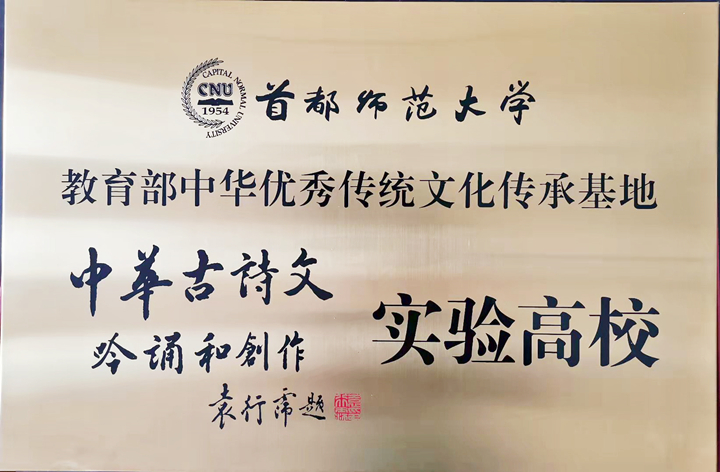 CAPITAL NORMAL UNIVERSITY
CNU
1954
首都师范大学
教育部中华优秀传统文化传承基地
中華古詩文
吟誦和創作
袁行霈题
实验高校